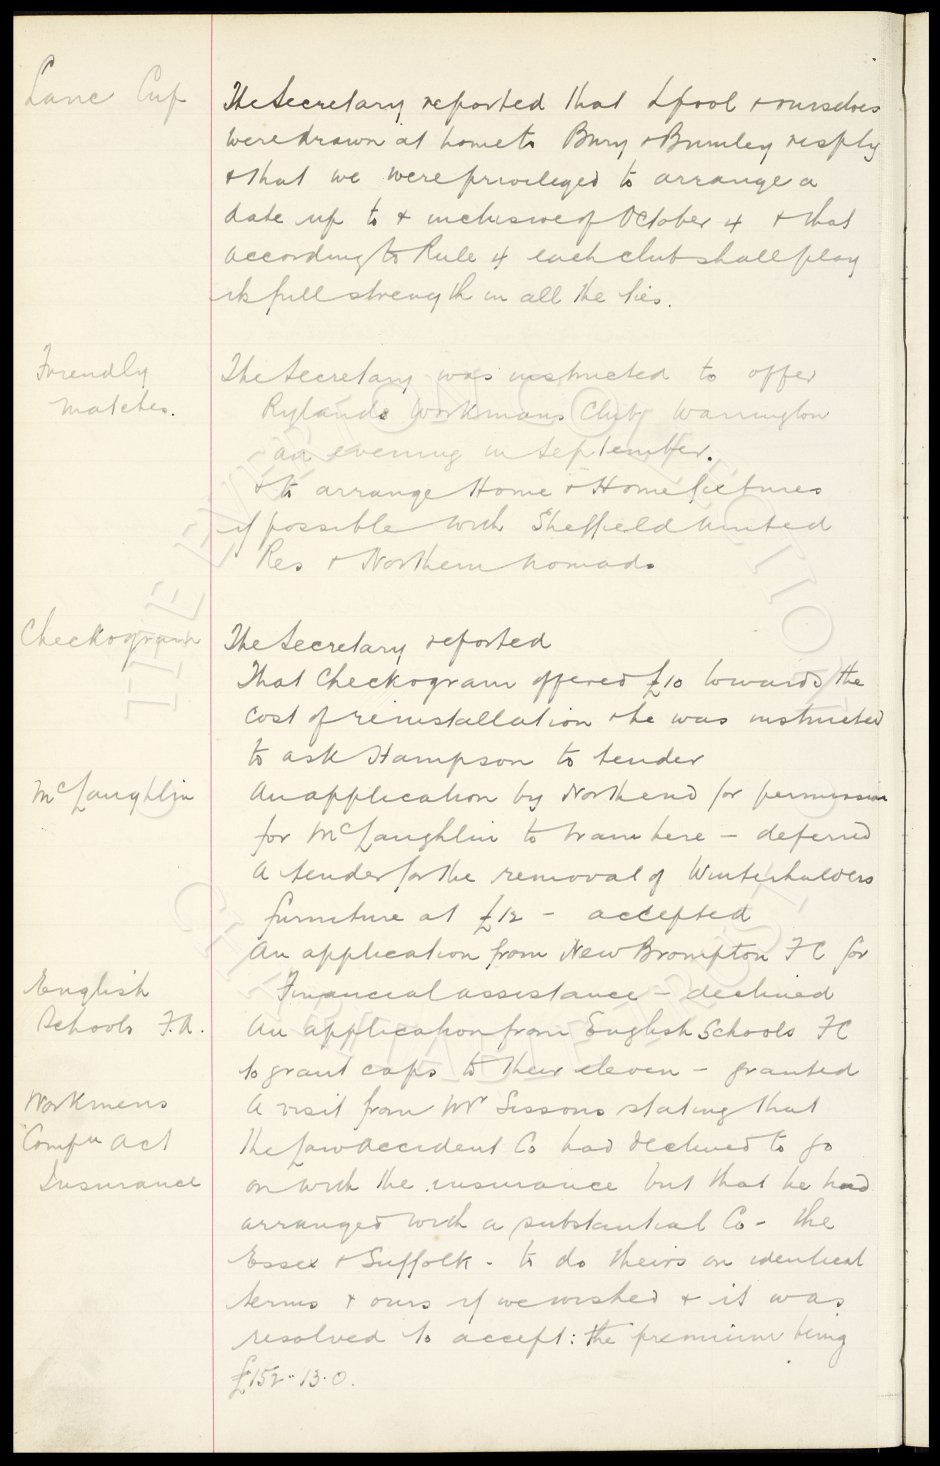 Lanc Cup
The Secretary reported that Lpool & ourselves
were drawn at home to Bury & Burnley resply
& that we were privileged to arrange a
date up to & inclusive of October 4 & that
according to Rule 4 each club shall play
its full strength in all the ties.
Friendly
Matches.
The Secretary was instructed to offer
Rylands Workmans Club Warrington
an evening in September.
& to arrange Home & Home fixtures
if possible with Sheffield United
Res & Northern Nomads
Checkogram
The Secretary reported
That Checkogram offered £10 towards the
cost of reinstallation & he was instructed
to ask Hampson to tender
McLaughlin
An application by Northend for permission
for McLaughlin to train here - deferred
A tender for the removal of Winterhalders
furniture at £12 - accepted
An application from New Brompton FC for
Financial assistance - declined
English
Schools F.A.
An application from English Schools FC
to grant caps to their eleven - granted
Workmens
Compn Act
Insurance
A visit from Mr Sissons stating that
the Law Accident Co had declined to go
on with the insurance but that he had
arranged with a substantial Co - the
Essex & Suffolk - to do theirs on identical
terms & ours if we wished & it was
resolved to accept: the premium being
£152-13-0.
THE EVERTON COLLECTION
CHARITABLE TRUST